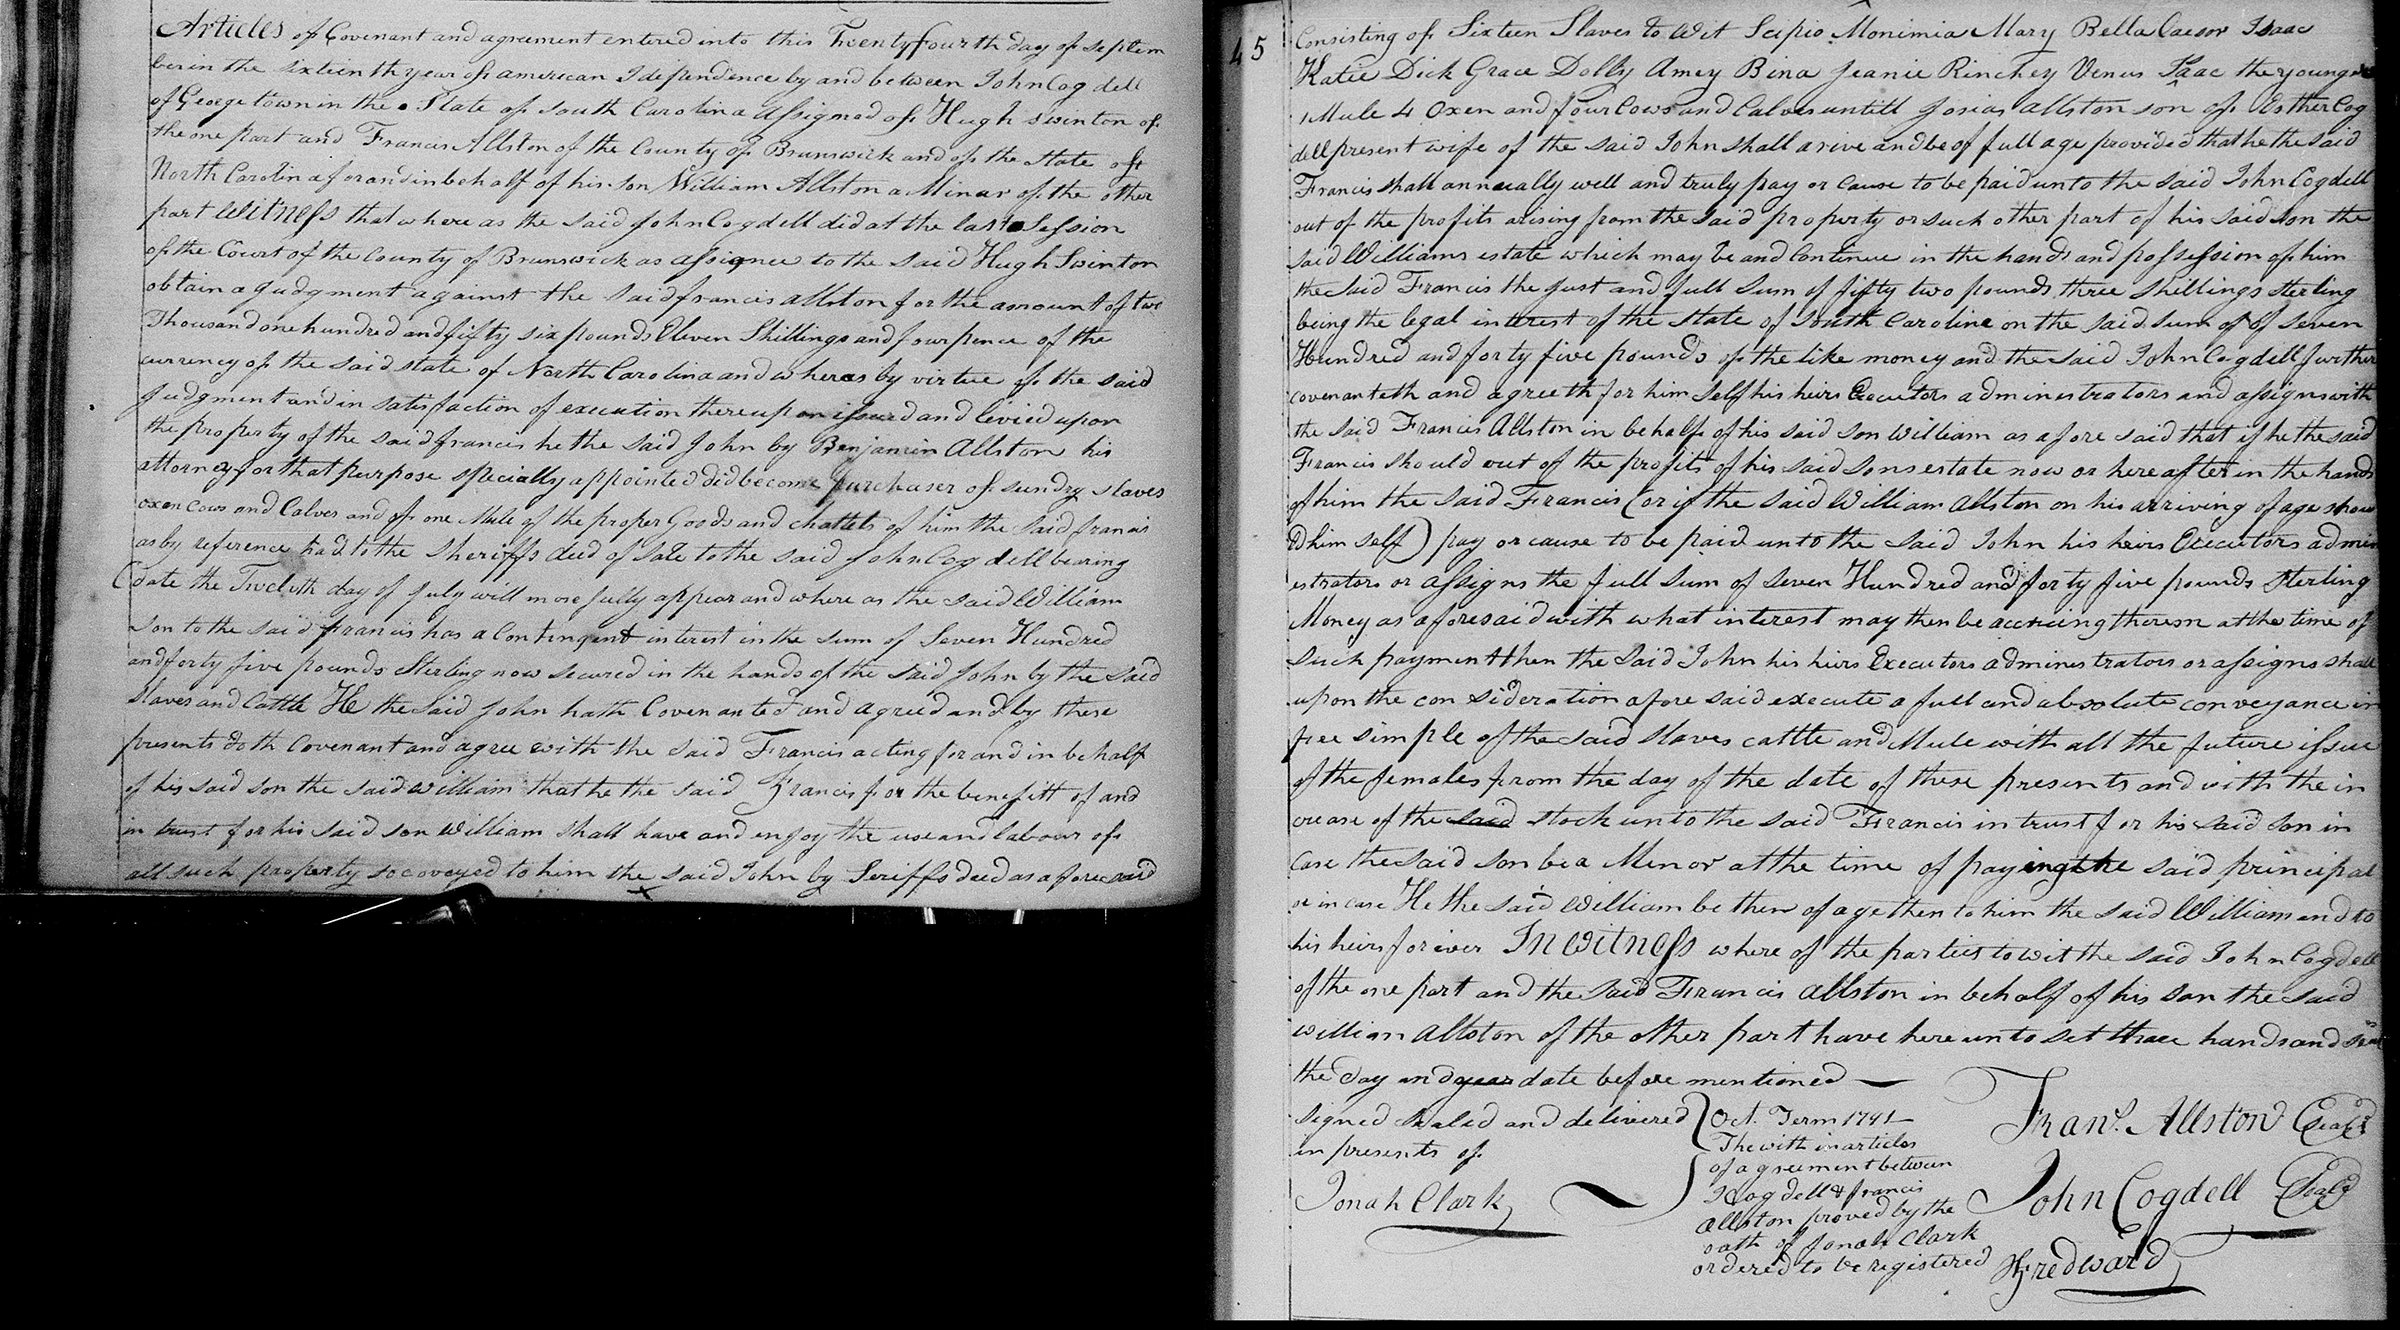 Articles of Covenant and agreement entered into this Twenty fourth day of Septem
ber in the sixteenth year of american Idependence by and between John Cogdell
of George town in the State of South Carolina Assigned of Hugh Swinton of
the one part and Francis Allston of the County of Brunswick and of the State of
North Carolina for and in behalf of his son William Allston a Minor of the other
part Witness that where as the said John Cogdell did at the last Session
of the Court of the County of Brunswick as assignee to the said Hugh Swinton
obtain a Judgment against the said francis allston for the amount of two
Thousand one hundred and fifty six pounds Eleven Shillings and four pence of the
currency of the said state of North Carolina and wheras by virtue of the said
Judgment and in satisfaction of execution thereupon issued and levied upon
the property of the said francis he the said John by Benjamin Allston his
attorney for that purpose specially appointed did become purchaser of sundry slaves
oxen cows and Calves and of one Mule of the proper Goods and chattels of him the said francis
as by reference had to the Sheriffs deed of Sale to the said John Cogdell bearing
date the Twelvth day of July will more fully appear and where as the said William
son to the said francis has a Contingent interest in the sum of Seven Hundred
and forty five pounds Sterling now secured in the hands of the said John by the said
Slaves and Cattle He the said John hath Covenanted and agreed and by these
presents doth Covenant and agree with the said Francis acting for and in behalf
of his said son the said William that he the said Francis for the benefitt of and
in trust for his said son William shall have and enjoy the use and labour of
all such property so coveyed to him the said John by Seriffs deed as aforesaid
45
Consisting of Sixteen Slaves to Wit Scipio Monimia Mary Bella Caesor Isaac
Katie Dick Grace Dolly Amey Bina Jeanie Rinchey Venus Isaac the younger
1 Mule 4 Oxen and four Cows and Calves untill Josias allston son of Esther Cog
dell present wife of the said John shall arive and be of full age provided that he the said
Francis shall annually well and truly pay or cause to be paid unto the said John Cogdell
out of the profits arising from the said property or such other part of his said son the
said Williams estate which may be and Continue in the hands and possession of him
the said Francis the Just and full sum of fifty two pounds three shillings sterling
being the legal interest of the state of South Caroline on the said sum of of seven
Hundred and forty five pounds of the like money and the said John Cogdell further
covenanteth and agreeth for him self his heirs Executors administrators and assigns with
the said Francis Allston in behalf of his said son William as afore said that if he the said
Francis should out of the profits of his said sons estate now or here after in the hands
of him the said Francis (or if the said William Allston on his arriving of age shou
ld him self) pay or cause to be paid unto the said John his heirs Executors admin
estrators or assigns the full sum of seven Hundred and forty five pounds Sterling
Money as aforesaid with what interest may then be accruing thereon at the time of
such payment then the said John his heirs Executors administrators or assigns shall
upon the consideration afore said execute a full and absolute conveyance in
fee simple of the said slaves cattle and Mule with all the future issue
of the females from the day of the date of these presents and with the in
crease of the said stock unto the said Francis in trust for his said son in
case the said son be a Menor at the time of paying the said principal
or in case He the said William be then of age then to him the said William and to
his heirs for iver In Witness where of the parties to wit the said John Cogdell
of the one part and the said Francis Allston in behalf of his son the said
William Allston of the other part have here unto set thare hands and seals
the day and year date before mentioned
signed sealed and delivered
in presents of
Jonah Clark
Oct. Term 1791
The with in articles
of agreement between
J Cogdell & francis
allston proved by the
oath of Jonah Clark
ordered to be registered
Frans. Allston Seald
John Cogdell Seald
Fredward